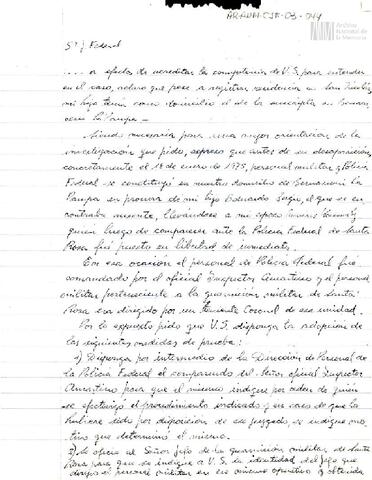 Archivo
Nacional de
la Memoria
Sr. J. Federal
.... a efectos de acreditar la competencia de V.S. para entender
en el caso, aclaro que pese a registrar residencia en
mi hijo tenía como domicilio el de la suscripta en
La Pampa.-
Siendo necesario para una mejor orientación de la
investigación que pido, expreso que antes de su desaparición,
concretamente el 18 de enero de 1975, personal militar y Policía
Federal se constituyó en nuestro domicilio de Bernasconi La
Pampa en procura de mi hijo Eduardo el que se en-
contraba ausente, llevándose a mi esposo
quien luego de comparecer ante la Policía Federal de Santa
Rosa fué puesto en libertad de inmediato.
En esa ocasión el personal de Policía Federal fué
comandado por el oficial Inspector y el personal
militar perteneciente a la guarnición militar de Santa
Rosa era dirigido por un Teniente Coronel de esa unidad.
Por lo expuesto pido que V.S. disponga la adopción de
las siguientes medidas de prueba:
1) Disponga por intermedio de la Dirección de Personal de
la Policía Federal el comparendo del Señor oficial Inspector
para que el mismo indique por orden de quien
se efectivizó el procedimiento indicado y en caso de que lo
hubiere sido por disposición de ese juzgado se indique mo-
tivo que determinó el mismo.
2) Se oficie al Señor Jefe de la guarnición militar de Santa
Rosa para que se indique a V.S. la identidad del Jefe que
dirigió al personal militar en ese mismo operativo y obtenida